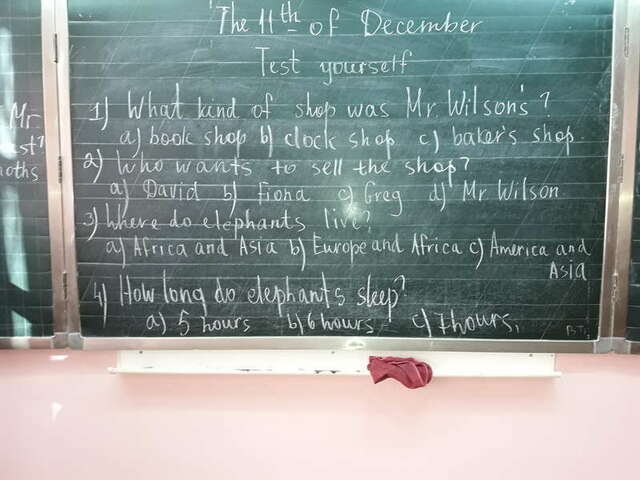 The 11th of December
Test yourself
1) What kind of shop was Mr. Wilson's?
a) book shop b) clock shop c) baker's shop
2) Who wants to sell the shop?
a) David b) Fiona c) Greg d) Mr Wilson
3) Where do elephants live?
a) Africa and Asia b) Europe and Africa c) America and
Asia
4) How long do elephants sleep?
a) 5 hours b) 6 hours c) 7 hours,
Mr